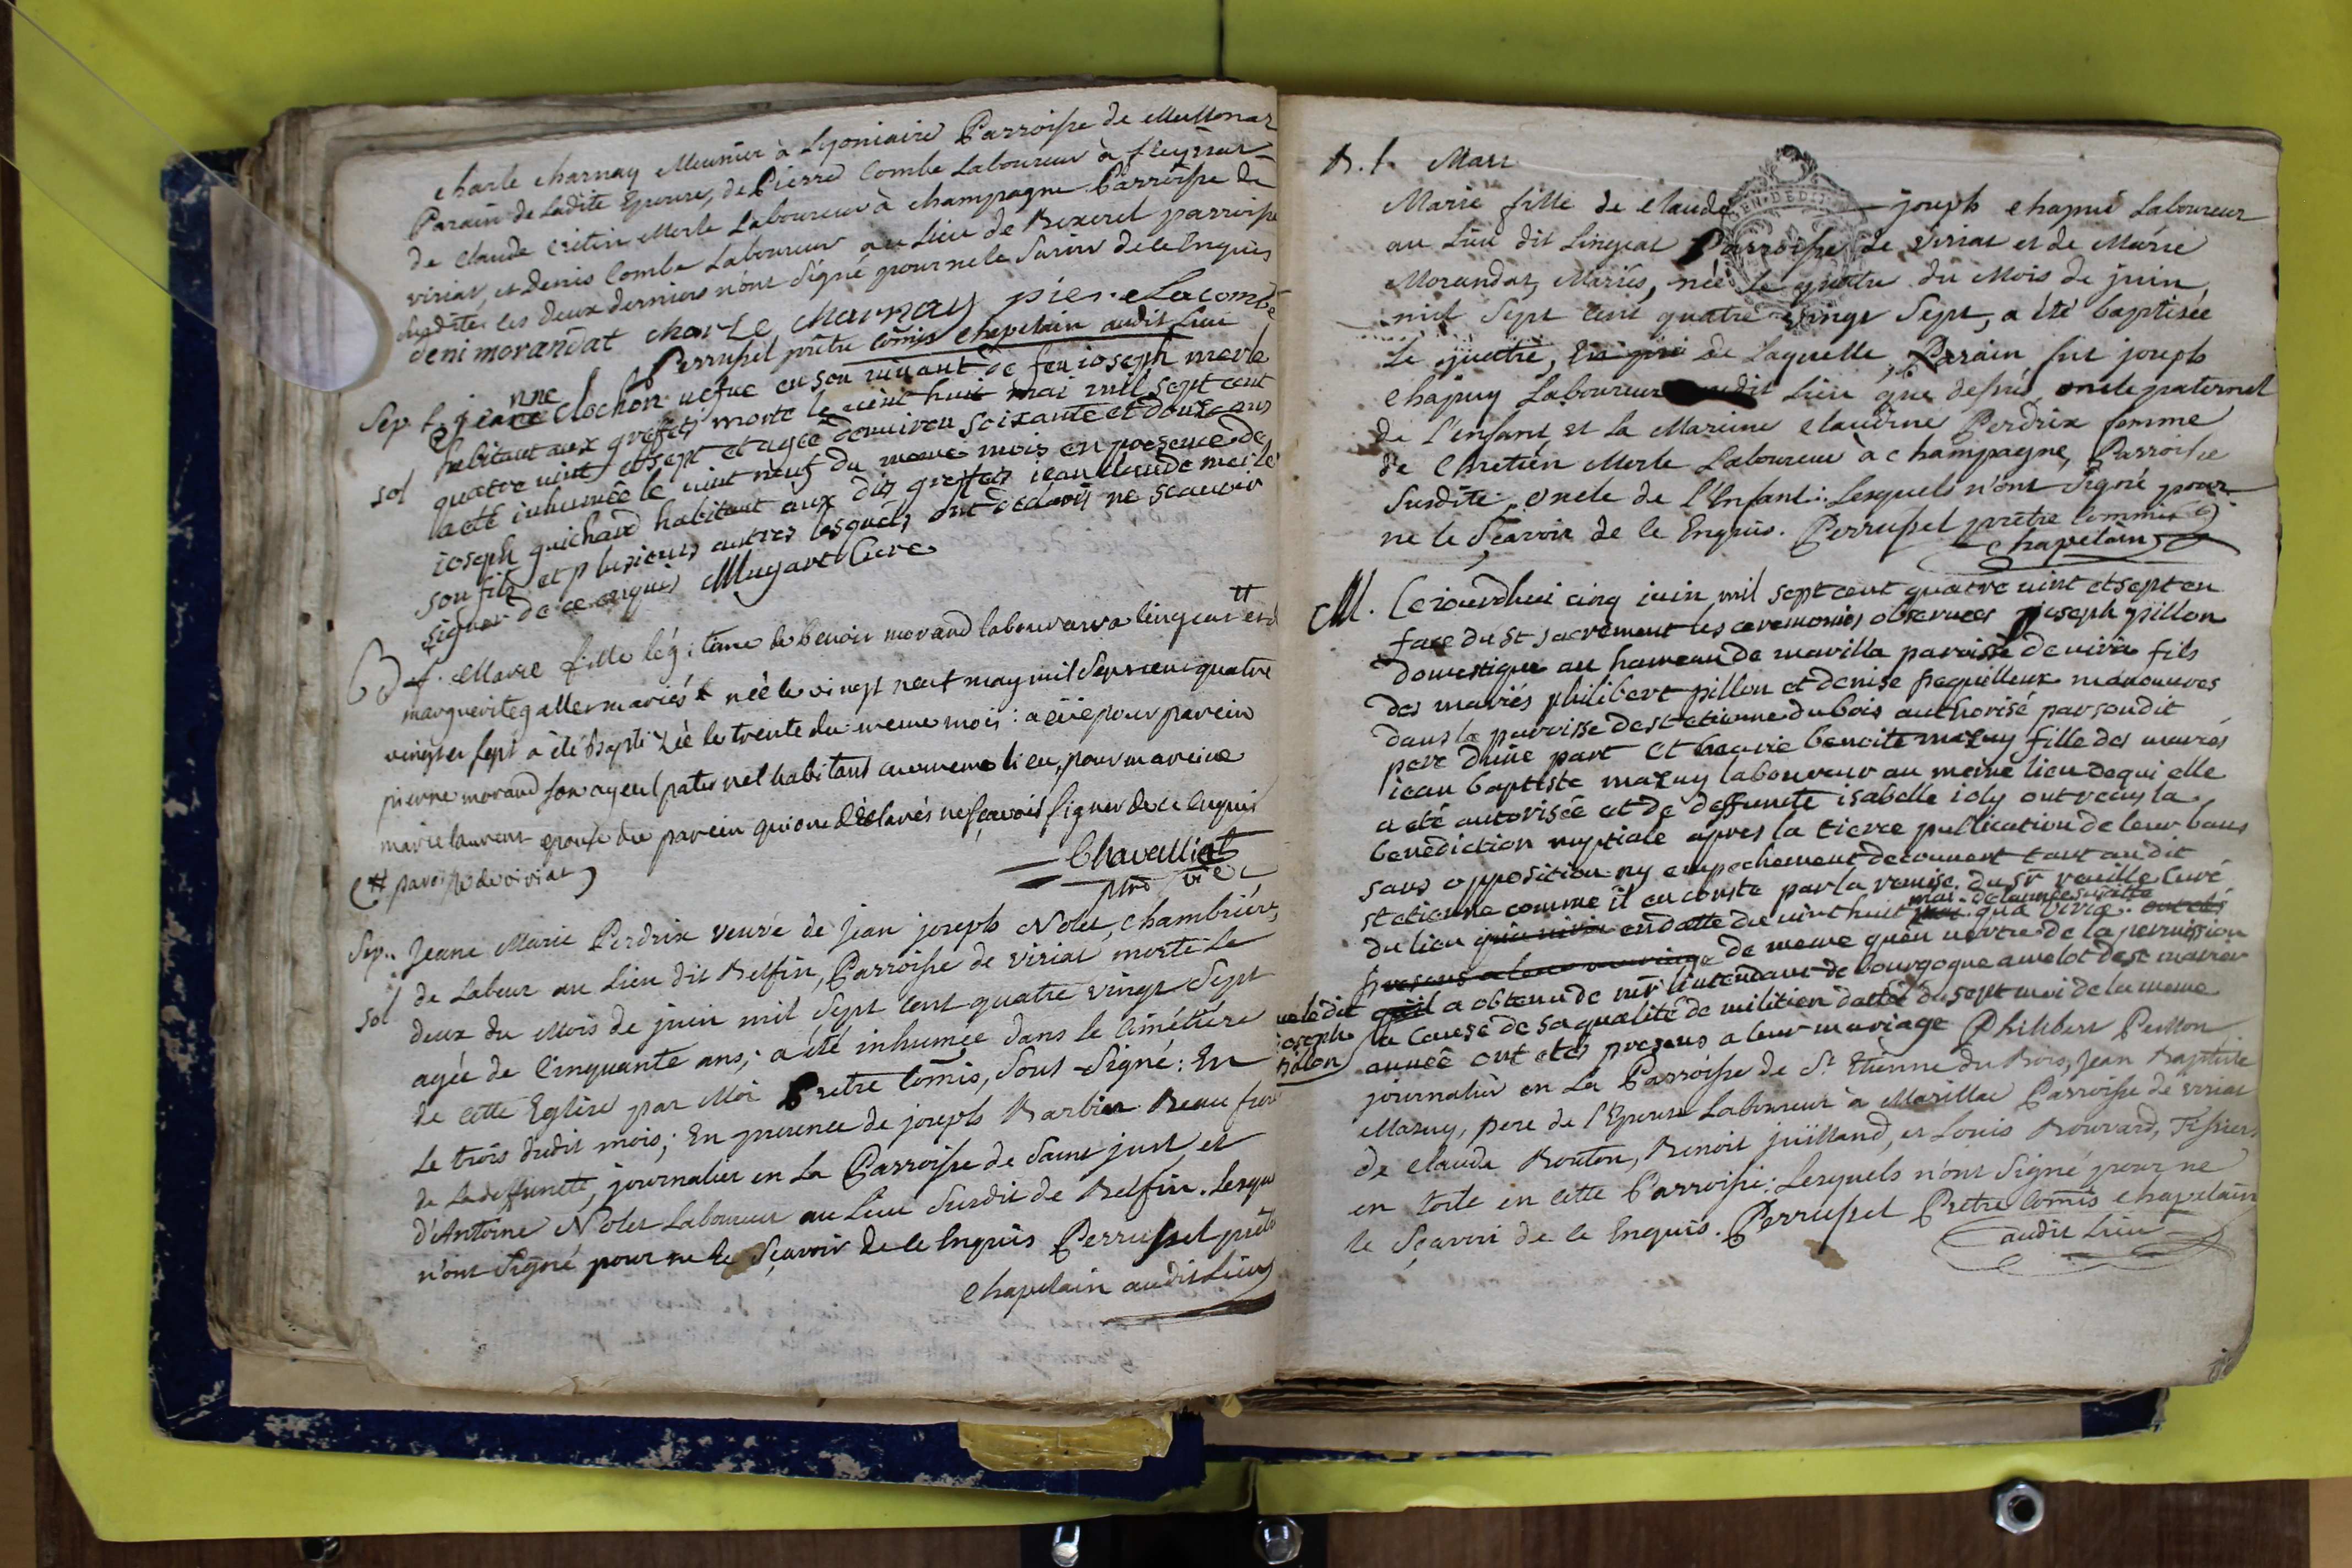 charle charnay Meunier à Lyoniaire Parroisse de
Parain de Ladite Epouse, de Pierre Combe Laboureur à
de Claude Cretin Merle Laboureur à champagne Parroisse de
viriat, et Denis Combe Laboureur au Lieu de parroisse
Susdite. les deux derniers n'ont Signé pour ne le Savoir de ce Enquis
deni morandat charle charnay pierre Lacombe
Perrussel prêtre Cômis chapelain audit Lieu
Sep. f. jeanne Clochon uefue en son uiuant de feu ioseph merle
habitant aux greffets morte le uint huit mai mil sept cent
sol quatre uint et sept et agée denuiron soixante et douze ans
a eté inhumée le uint neuf du meme mois en presence de
ioseph guichard habitant aux dits greffets iean claude merle
son fils et plusieurs autres lesquels ont déclaré ne scauoir
signer de ce enquis Mugart Curé
B f. Marie fille légitime de benoit morand laboureur a lingeat # et de
marguerite galler mariés née le vingt neuf may mil sept cent quatre
vingt et sept a été baptizée le trente du meme mois : a eue pour parein
pierre morand son ayeul paternel habitant au meme lieu, pour mareine
marie laurent epouse du parein qui ont déclarés ne sçavoir signer de ce enquis
Chavallier
ptre vic
(# paroisse de viriat)
Sep. Jeane Marie Perdrix veuve de jean joseph Nolet, chambrière
de Labeur au Lieu dit Belfin, Parroisse de viriat morte le
sol deux du Mois de juin mil Sept Cent quatre vingt Sept
agée de Cinquante ans; a été inhumée dans le Cimétière
de cette Eglise par Moi Prêtre Cômis, Sous-Signé: En
Le trois dudit mois; En presence de joseph Barbier Beau frere
de La deffuncte, journalier en La Parroisse de Saint just, et
d'Antoine Nolet Laboureur au Lieu Susdit de Belfin. Lesqu
n'ont Signé pour ne le Sçavoir de ce Enquis Perrussel prêtr
chapelain audit Lieu
B. f. Mari
Marie fille de claude joseph chapuis Laboureur
au Lieu dit Lingeat Parroisse de viriat et de Marie
Morandat, Mariés, née le quatre du Mois de juin
mil Sept Cent quatre vingt Sept, a été baptisée
Le quatre, de Laquelle, Parain fut joseph
chapuy Laboureur audit Lieu que dessus, oncle paternel
de l'enfant et la Marine claudine Perdrix femme
de Cretien Merle Laboureur à champagne, Parroisse
Susdite. oncle de l'Enfant. Lesquels n'ont Signé pour
ne le Sçavoir de ce Enquis. Perrussel prêtre Commis
chapelain
M. Ce iourdhui cinq iuin mil sept cent quatre uint et sept en
face du st sacrement les ceremonies obseruées joseph pillon
domestique au hameau de marilla paroisse de uiria fils
des mariés philibert pillon et denise manouures
dans la paroisse de st etienne du bois authorisé par son dit
pere d'une part et marie benoite mazuy fille des mariés
iean baptiste mazuy laboureur au meme lieu de qui elle
a eté autorisée et de deffuncte isabelle ioly ont receu la
benediction nuptiale apres la tierce publication de leur bans
sans opposition ny empechement decouuert tant au dit
st etienne comme il en conste par la remise du sr reuille Curé
du lieu en datte du uint huit mai de l'année susditte qu'a viria
de meme qu'en uertu de la permission
que le dit joseph pillon a obtenu de mr l'intendant de bourgogne amelot de st marier
a cause de sa qualité de milicien dattée du sept mai de la meme
année ont etés presens a leur mariage Philibert Pillon
journalier en La Parroisse de St Etienne du Bois, Jean Baptiste
Mazuy, pere de l'Epouse Laboureur à Marillat Parroisse de viriat
de Claude Bouton, Benoit juilland, et Louis Bouvard, Tissiers
en toile en cette Parroisse. Lesquels n'ont Signé pour ne
le Sçavoir de ce Enquis. Perrussel Prêtre Cômis chapelain
audit Lieu